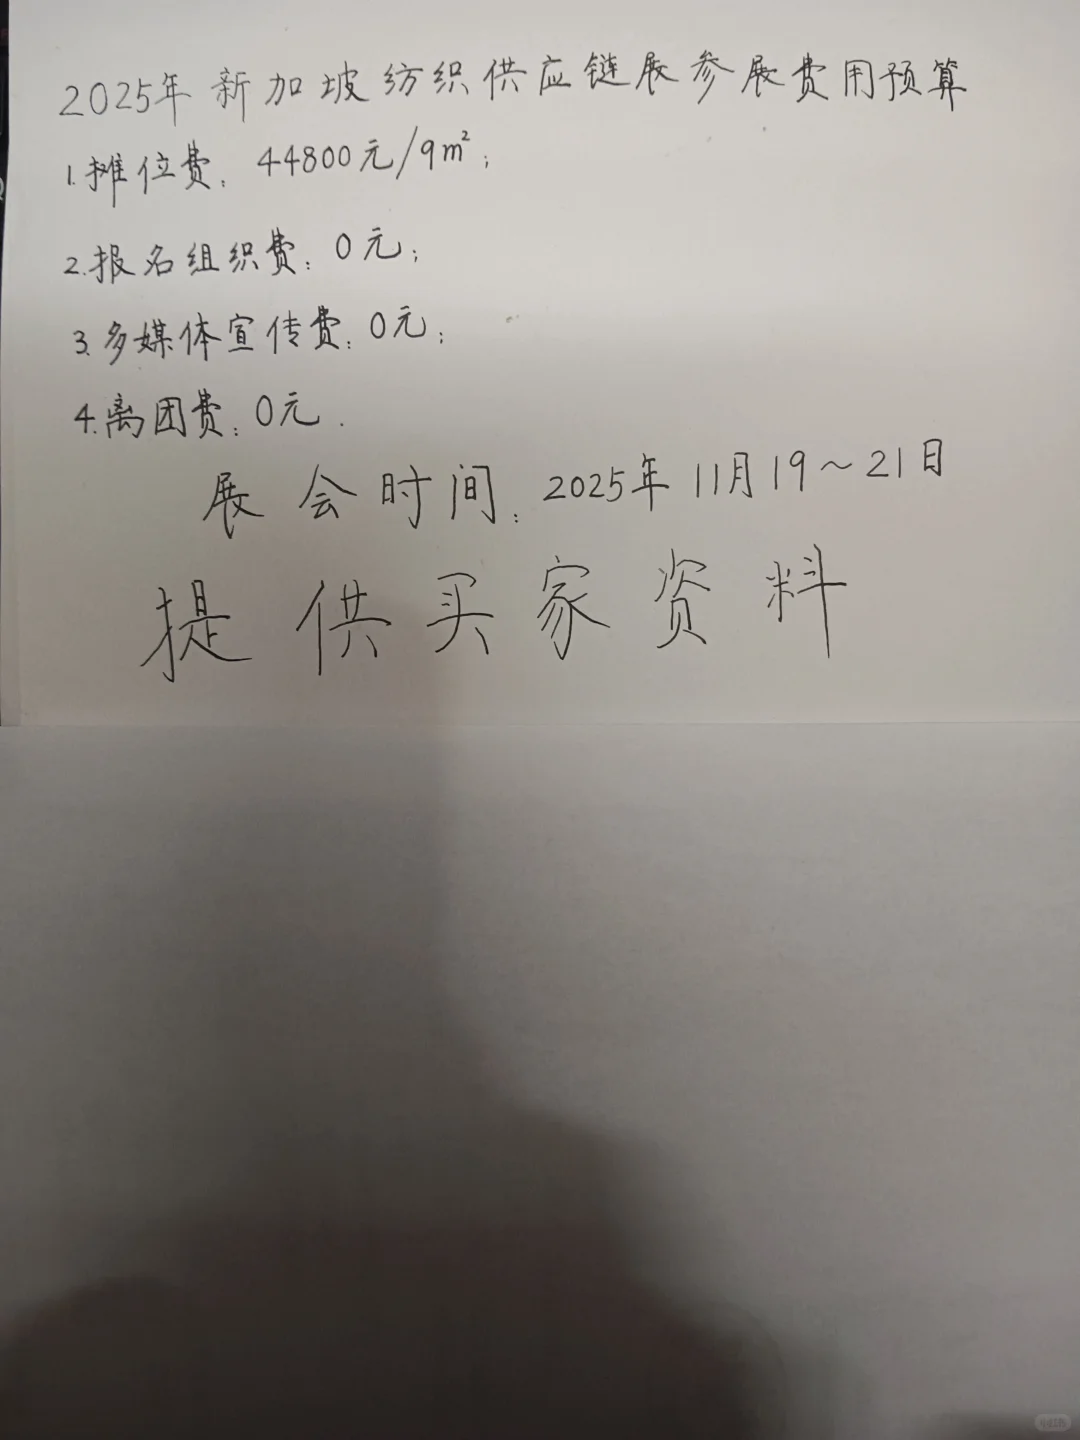 2025年新加坡纺织供应链展参展费用预算
1.摊位费：44800元/9m²；
2.报名组织费：0元；
3.多媒体宣传费：0元；
4.离团费：0元.
展会时间：2025年11月19～21日
提供买家资料